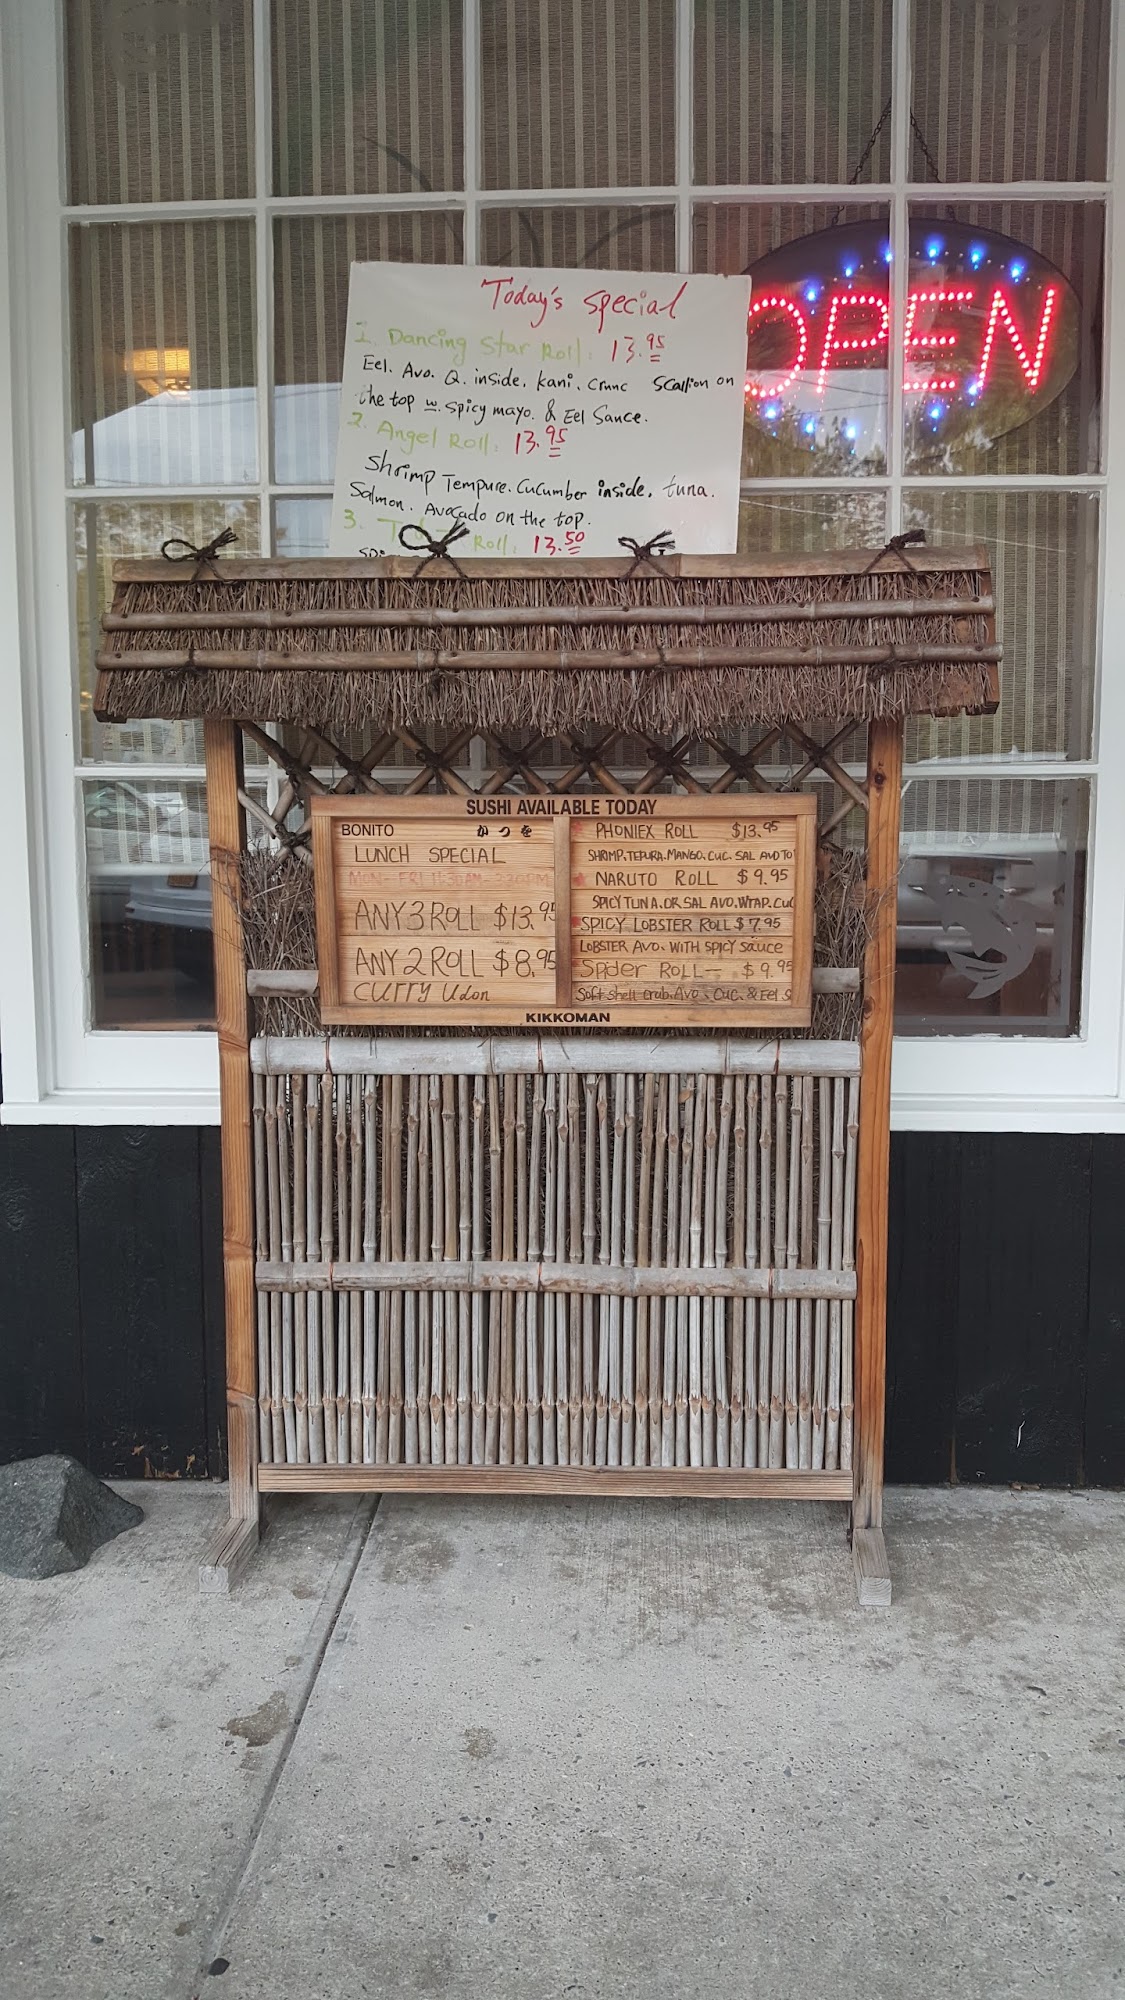 Today's Special
1. Dancing Star Roll: 13.95
Eel. Avo. Q. inside. kani. crunc scallion on
the top w. spicy mayo. & Eel Sauce.
2. Angel Roll: 13.95
Shrimp Tempure. Cucumber inside. tuna.
Salmon. Avocado on the top.
3. Roll: 13.50
OPEN
SUSHI AVAILABLE TODAY
BONITO かつを
LUNCH SPECIAL
MON-FRI 11:30AM-2:30PM
ANY 3 ROLL $13.95
ANY 2 ROLL $8.95
CURRY Udon
PHONIEX ROLL $13.95
SHRIMP.TEPURA.MANGO.CUC. SAL AVO TO
NARUTO ROLL $9.95
SPICY TUNA.OR SAL AVO.WRAP.CUC
SPICY LOBSTER ROLL $7.95
LOBSTER AVO. WITH SPICY SAUCE
Spider ROLL— $9.95
Soft shell crab.Avo. Cuc. & Eel S
KIKKOMAN